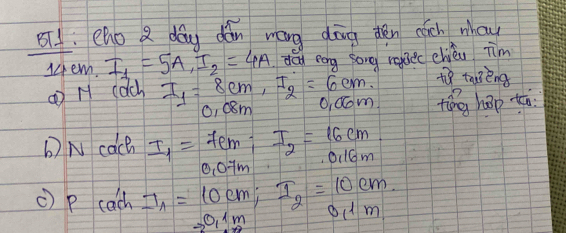 BT1: Cho 2 dây dẫn mang dòng điện cách nhau
14cm. I₁ = 5A, I₂ = 4A. đặt song song ngược chiều. Tìm
a) M cách I₁ = 8cm, I₂ = 6cm. từ trường
0,08m 0,06m. tổng hợp tại:
b) N cách I₁ = 7cm; I₂ = 16cm.
0,07m 0,16m
c) P cách I₁ = 10cm; I₂ = 10cm.
→0,1m 0,1m